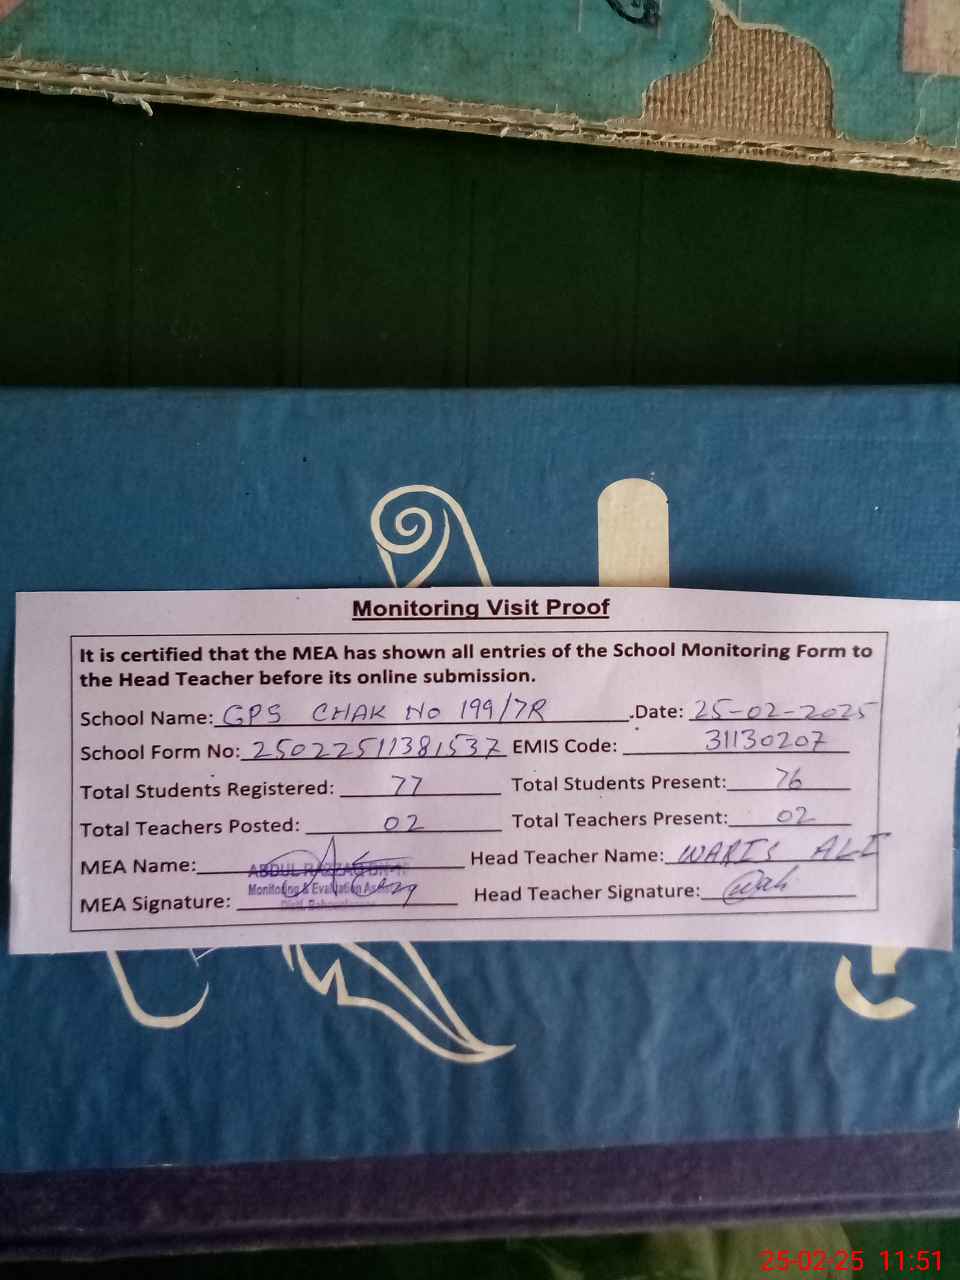 Monitoring Visit Proof
It is certified that the MEA has shown all entries of the School Monitoring Form to
the Head Teacher before its online submission.
School Name: GPS CHAK No 199/7R .Date: 25-02-2025
School Form No: 25022511381537 EMIS Code: 31130207
Total Students Registered: 77 Total Students Present: 76
Total Teachers Posted: 02 Total Teachers Present: 02
MEA Name: ABDUL RAZZAQ Head Teacher Name: WARIS ALI
Monitoring & Evaluation
MEA Signature: Head Teacher Signature:
25-02-25 11:51